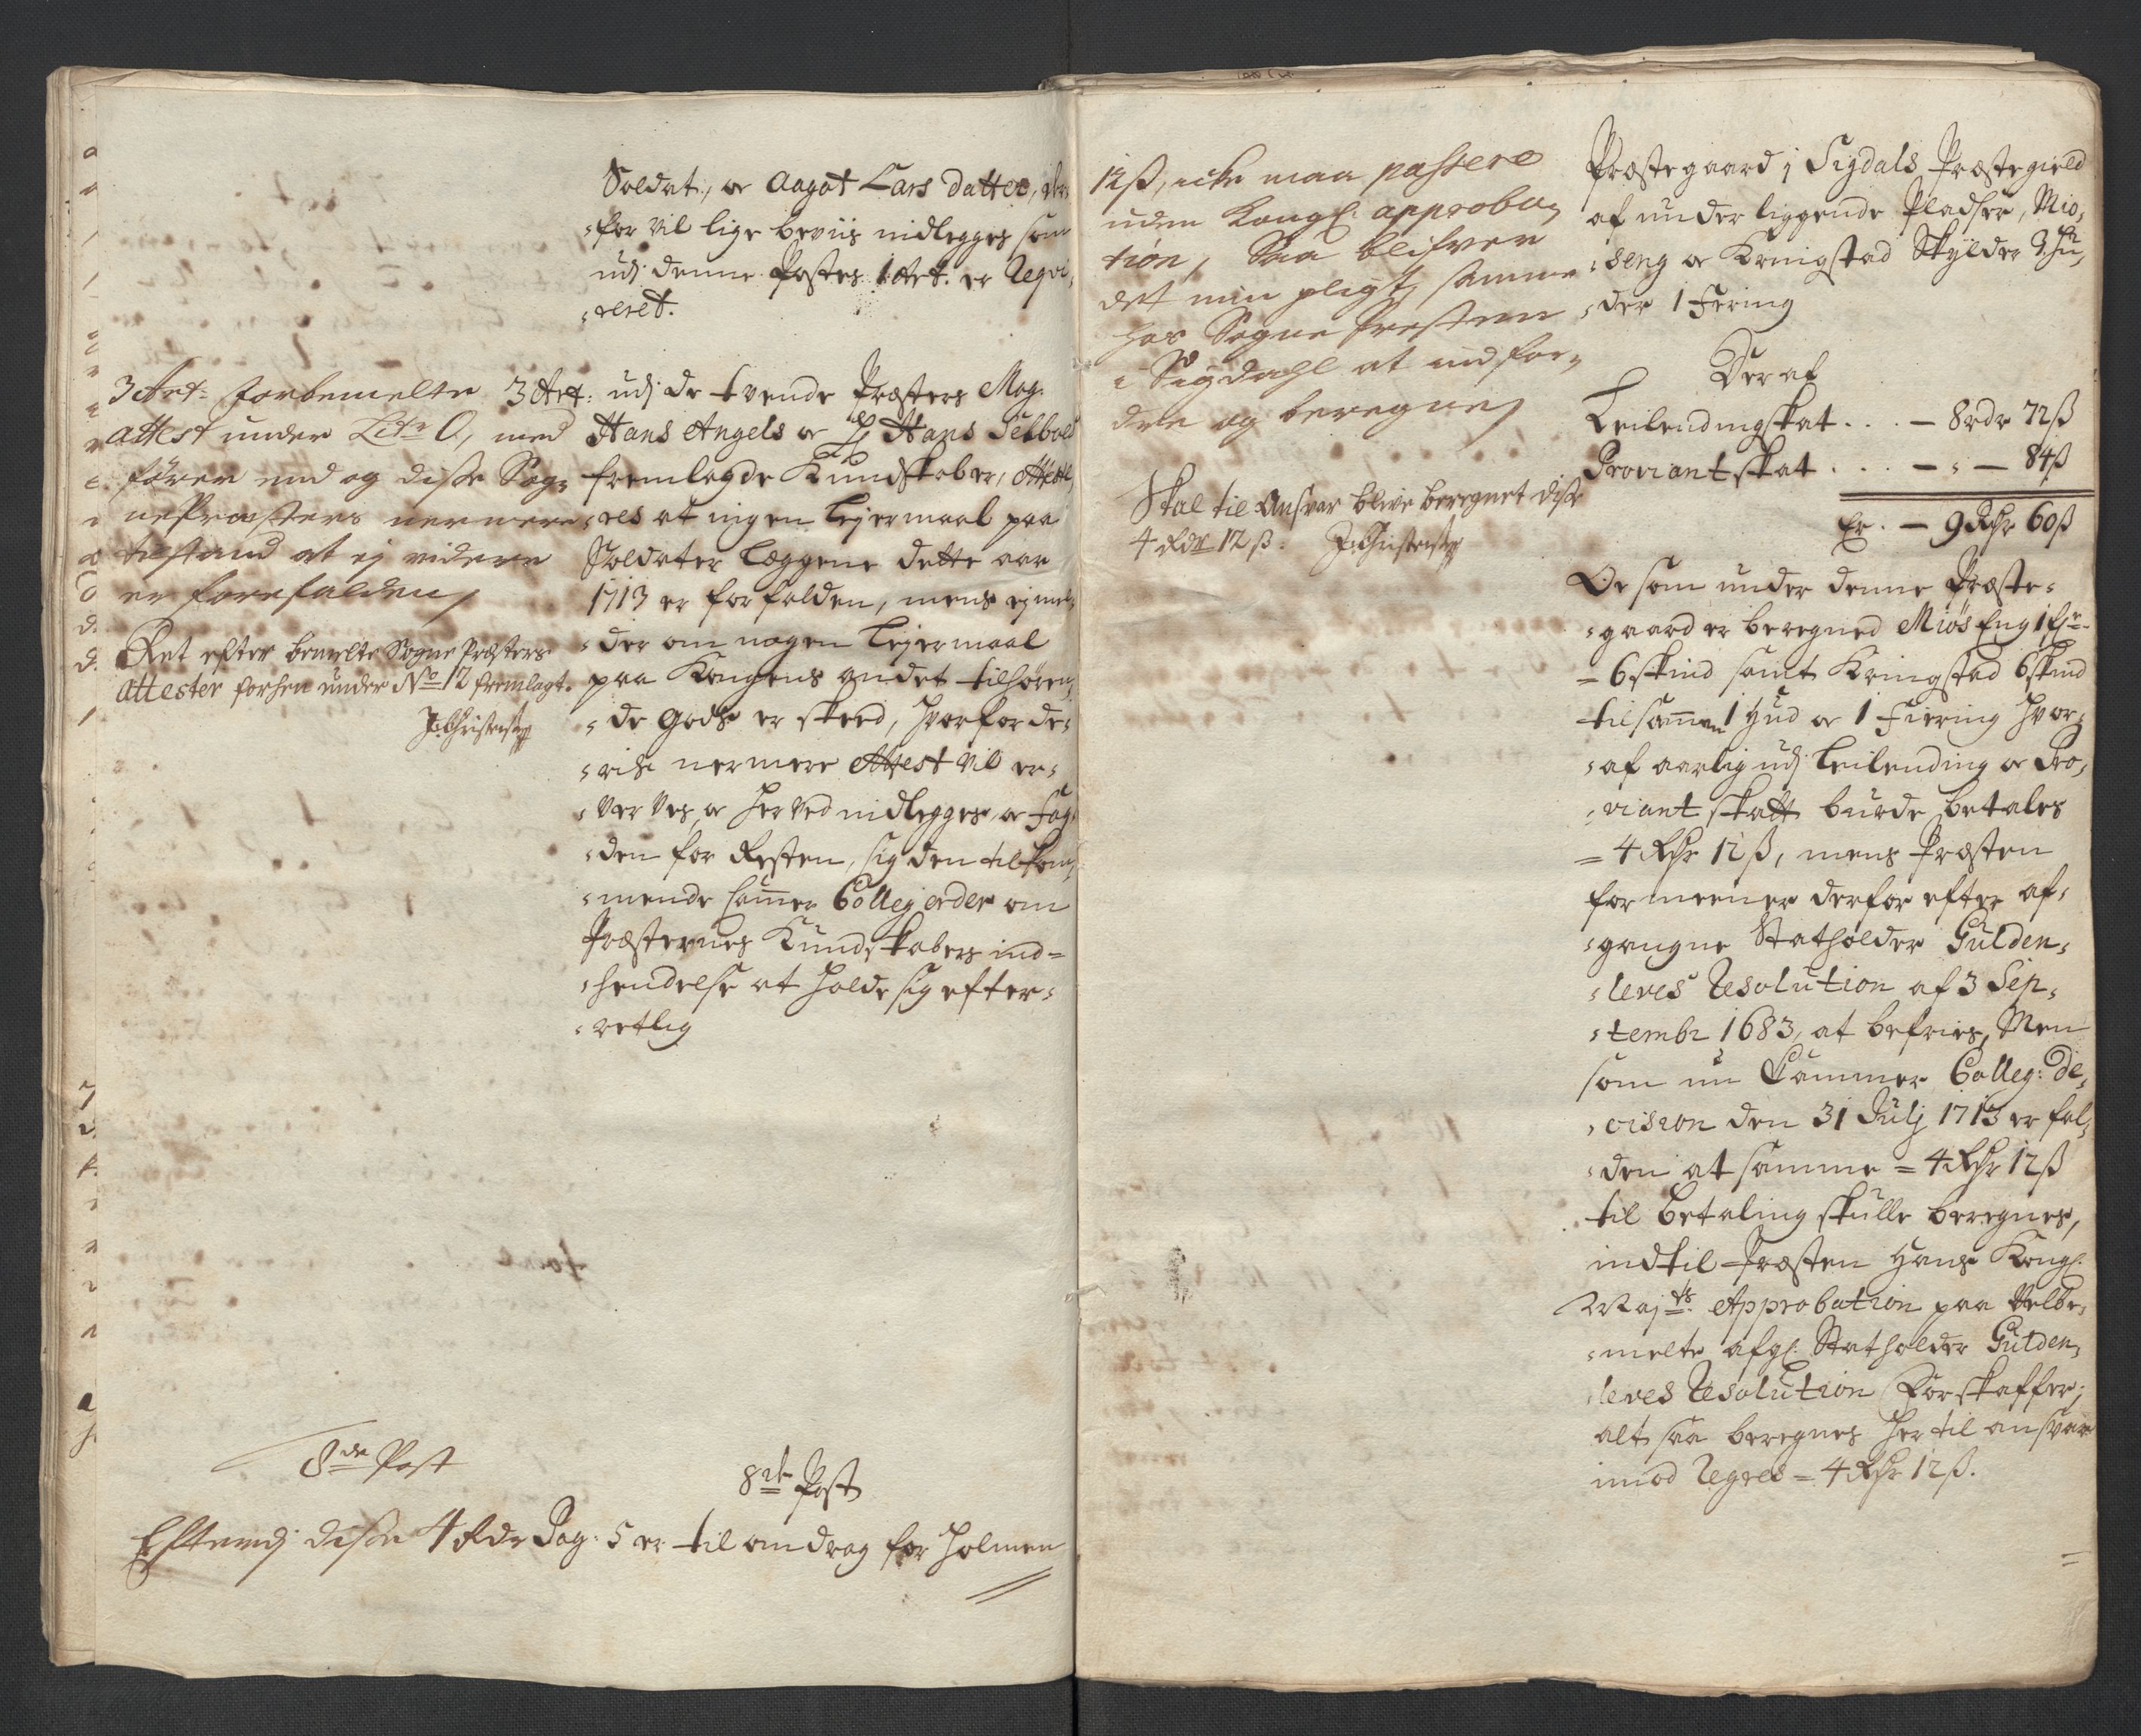 Soldat, og Aagot Lars datter, der,
,for vil lige beviis nidlegges som
udj denne Postes 1 Art. er Reqvi,
,reret.
3 Art: Forbemelte
attest under Litr O, med
fører end og disse Sog,
nePræsters nermere
tilstand at ej videre
er forefalden
Ret efter bemelte Sogne Præsters
Attester forhen under No 12 fremlagt.
J. Christensen
3 Art: udj de tvende Præsters Mag:
Hans Angels og Hr Hans Seebols
fremlagde Kundskaber, Atteste,
,res at ingen Lejermaal paa
Soldater Læggene dette aar
1713 er forfalden, mens ej mel,
,der om nogen Lejermaal
paa Kongens andet tilhøren,
,de Gods er skeed, hvorfor de,
,ris nermere Attest vil er,
,verves, og herved nidlegges, og Fog,
,den for Resten, sig den tilkom,
,mende Cammer Collegj order om
Præsternes Kundskabers ind=
,hendelse at holde sig efter,
,retlig
8de Post
Efterdj disse 4 Rdr
8de Post
Pag: 5 er til andrag for Holmen
12ß, icke maa passere
uden Kongl: approba,
tion, Saa blifver
det min pligt, samme
hos Sogne Presten
i Sigdahl at indfor,
dre og beregne
Skal til Ansvar blive beregnet disse
4 Rdr 12 ß. J. Christensen
Præstegaard j Sigdals Præstegield
af underliggende Pladser, Mio,
,seng og Kringstad Skylder 2 Hu,
,der 1 Fering
Deraf
Leilendingskat . . . — 8 rdr 72ß
Proviantskat . . . — , — 84ß
Er . — 9 Rdr 60ß
Og som under denne Præste,
,gaard er beregned Miøs Eng 1 fr
= 6 skind samt Kringstad 6 skind
tilsammen 1 Hud og 1 Fiering hvor,
,af aarlig udj Leilending og Pro,
,viant skatt burde betales
= 4 Rdr 12ß, mens Præsten
formeener derfor efter af,
,gangne Statholder Gulden,
,leves Resolution af 3 Sep,
,tembr 1683, at befries, Men
som nu Cammer Colleg: de,
,cision den 31 Julj 1713 er fal,
,den at samme = 4 Rdr 12ß
til betaling skulle beregnes,
indtil Præsten Hans Kongl:
Majts: Approbation paa Velbe,
,melte afgl: Statholder Gulden,
,leves Resolution forskaffer,
alt saa beregnes her til ansvar
imod Regres = 4 Rdr 12ß.